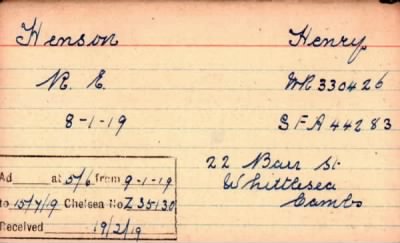 Henson Henry
R. E. WR 330426
8-1-19 SFA 44283
22 Barr St.
Whittlesea
Cambs
Ad at 5/6 from 9-1-19
to 15/7/19 Chelsea No Z 35130
Received 19/2/19